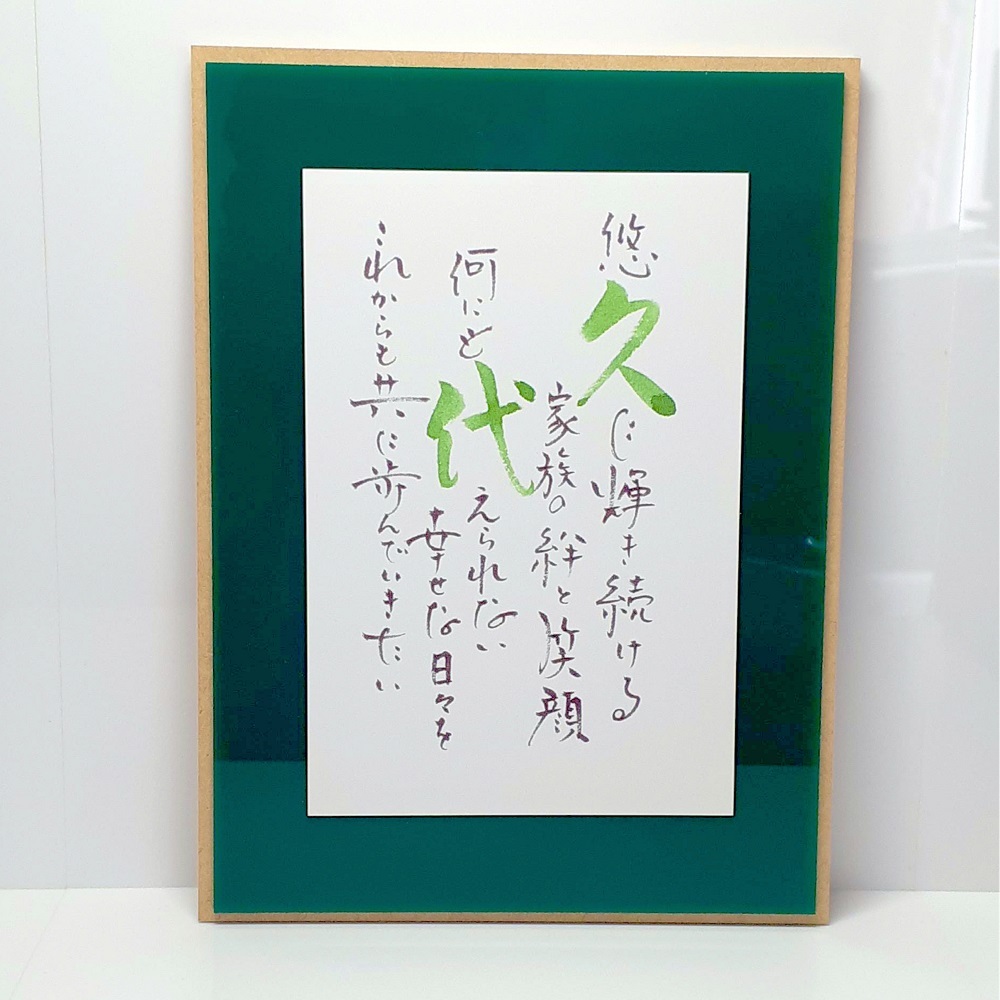 悠久に輝き続ける
家族の絆と笑顔
何にど代えられない
幸せな日々を
これからも共に歩んでいきたい